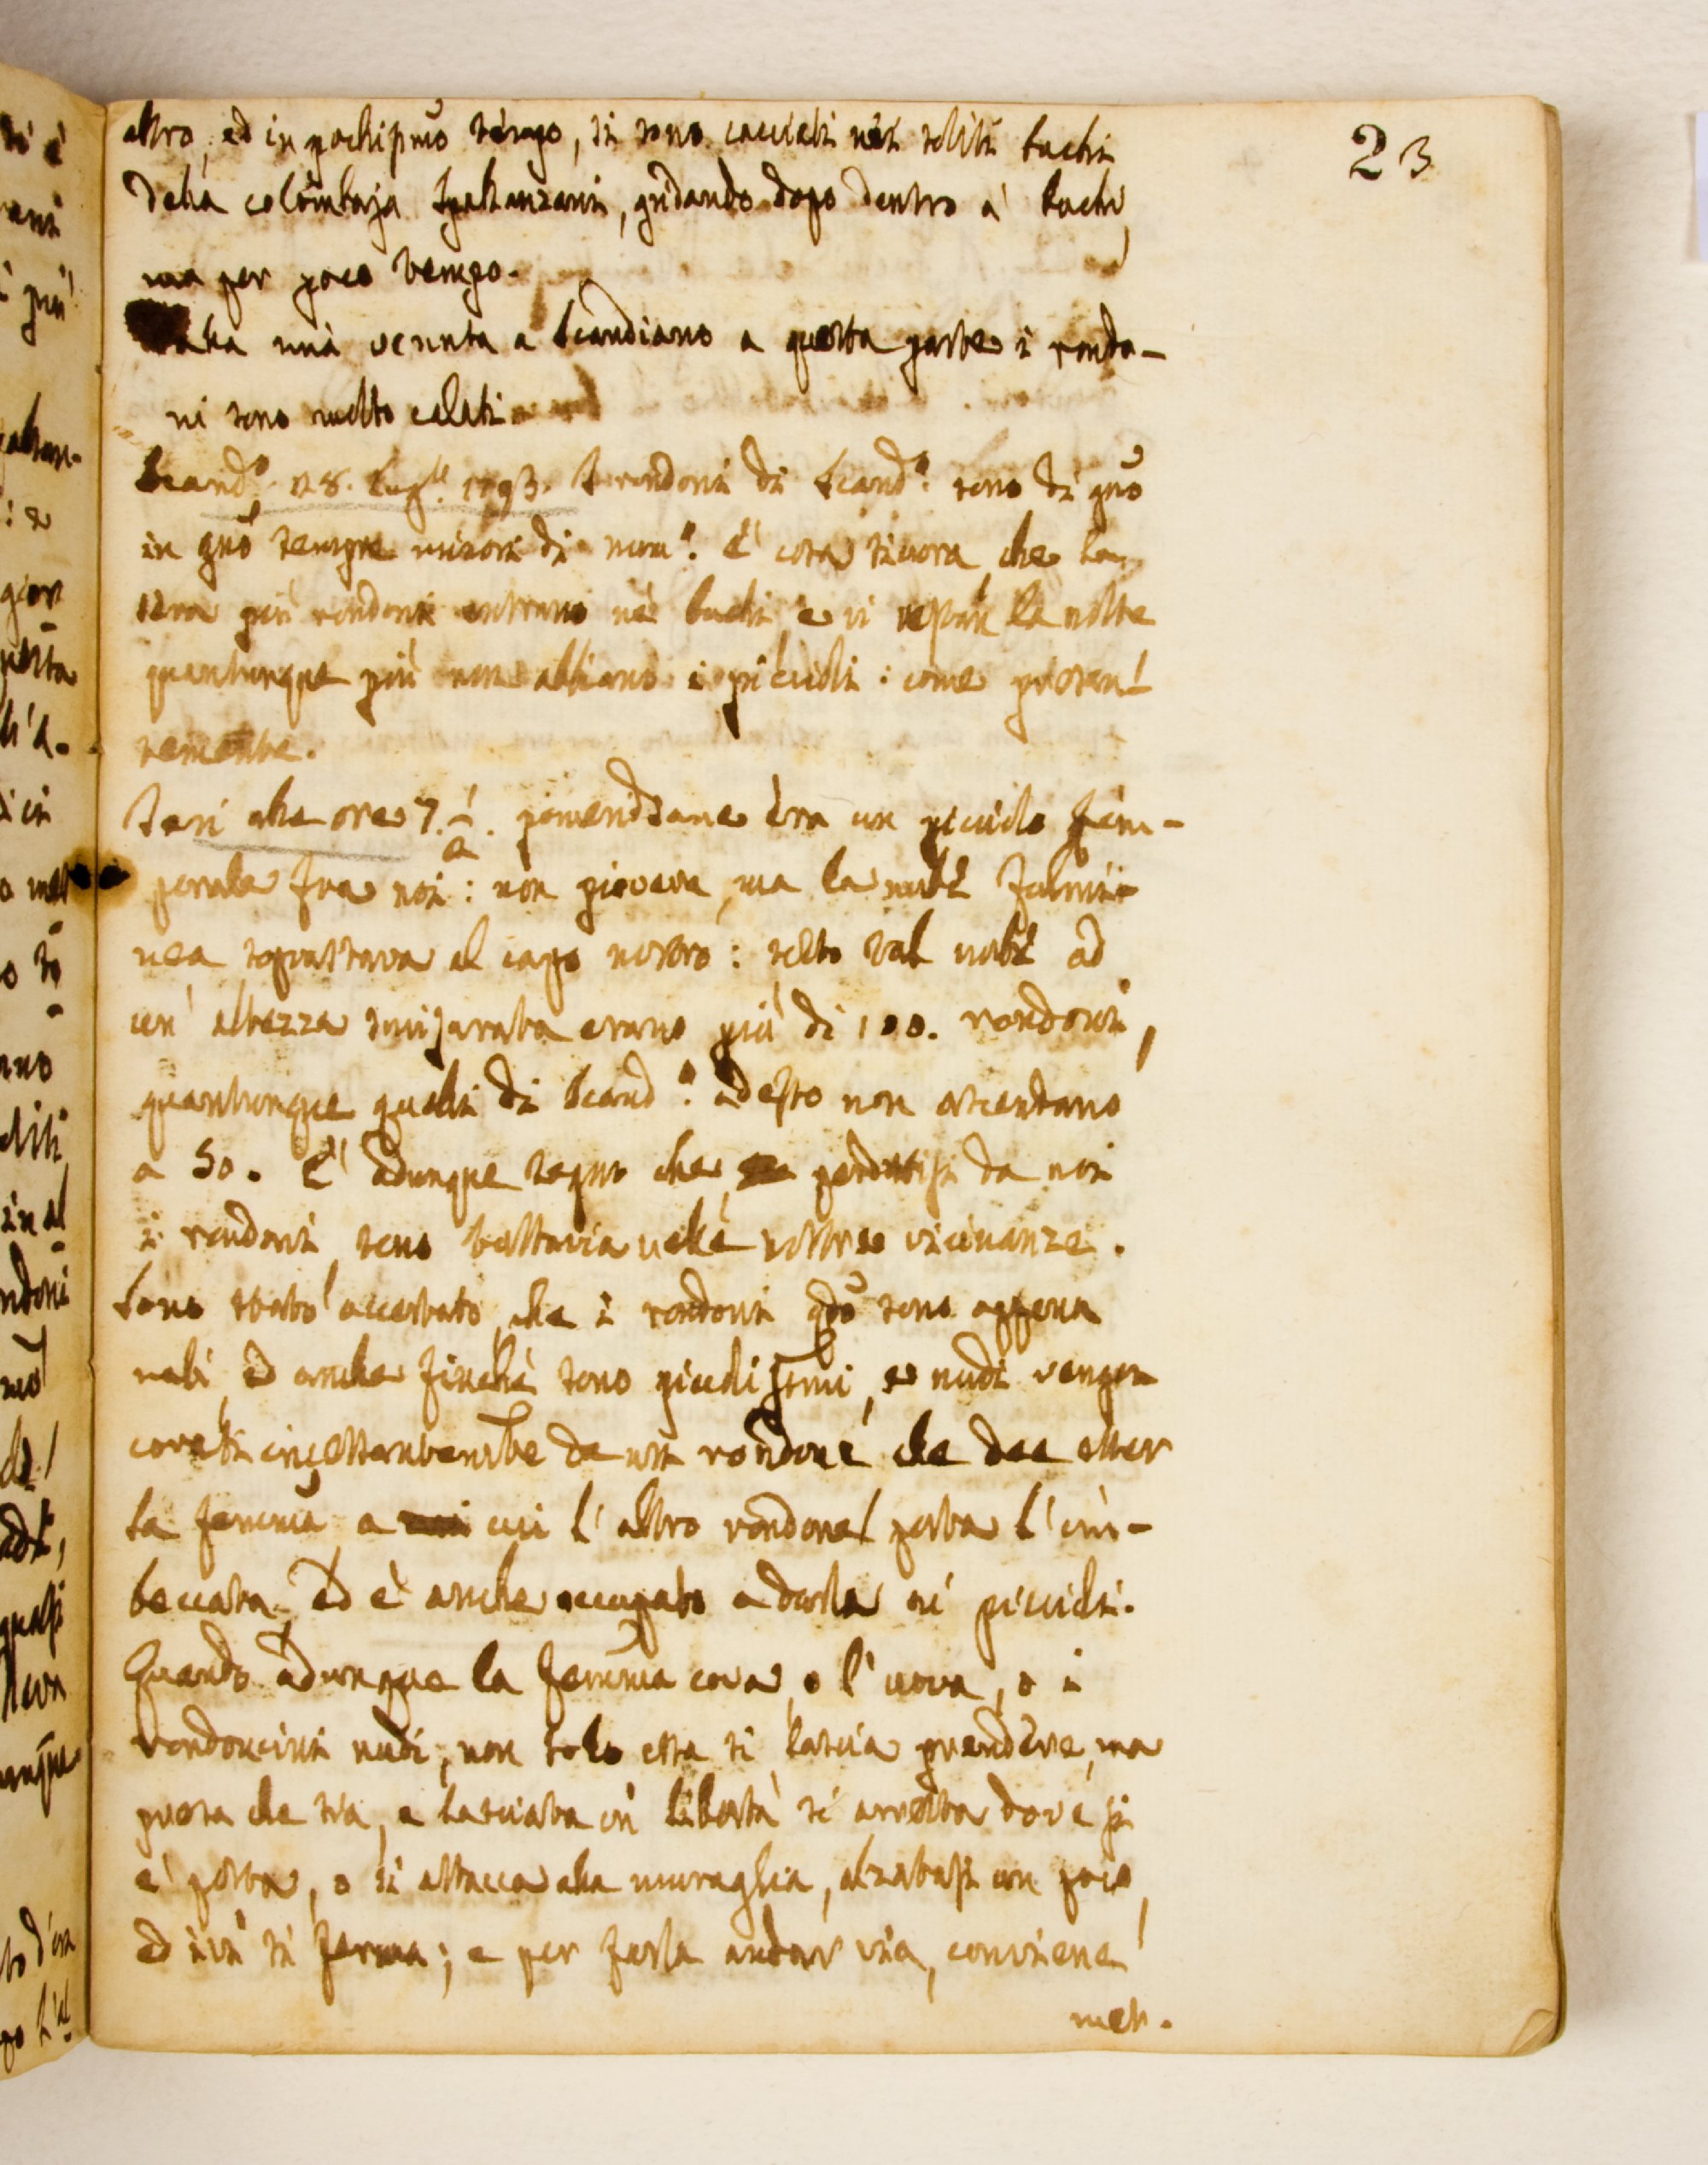 23
altro, ed in pochiss.mo tempo, si sono cacciati nei soliti buchi
della colombaja Spallanzani, gridando dopo dentro a' buchi,
ma per poco tempo.
Dalla mia venuta a Scandiano a questa parte i rondo-
ni sono molto calati.
Scand.o 28. Lugl. 1793. I rondoni di Scand.o sono di gno
in gno sempre minori di num.o. E' cosa sicura, che la
sera più rondoni entrano ne' buchi, e vi restan la notte
quantunque più non abbiano i piccioli: come precen-
temente.
Jeri alle ore 7. 1/2. pomeridiane era un picciolo tem-
porale fra noi: non pioveva, ma la nube fulmi-
nea soprastava al capo nostro: sotto tal nube ad
un' altezza smisurata erano più di 100. rondoni,
quantunque quelli di Scand.o adesso non ascendano
a 50. E' adunque segno che, perdutisi da noi
i rondoni, sono tuttavia nelle nostre vicinanze.
Sono stato accertato, che i rondoni qdo sono appena
nati, ed anche finchè sono picciolissimi, e nudi vengon
covati incessantemente da un rondone che dee esser
la femmina, a cui l' altro rondone porta l' im-
beccata, ed è anche occupato a darla ai piccioli.
Quando adunque la femmina cova, o l' uova, o i
rondoncini nudi, non solo essa si lascia prendere, ma
presa che sia, e lasciata in libertà si arresta dove si
è posta, o si attacca alla muraglia, alzatasi un poco,
ed ivi si ferma; e per farla andar via, conviene
met-